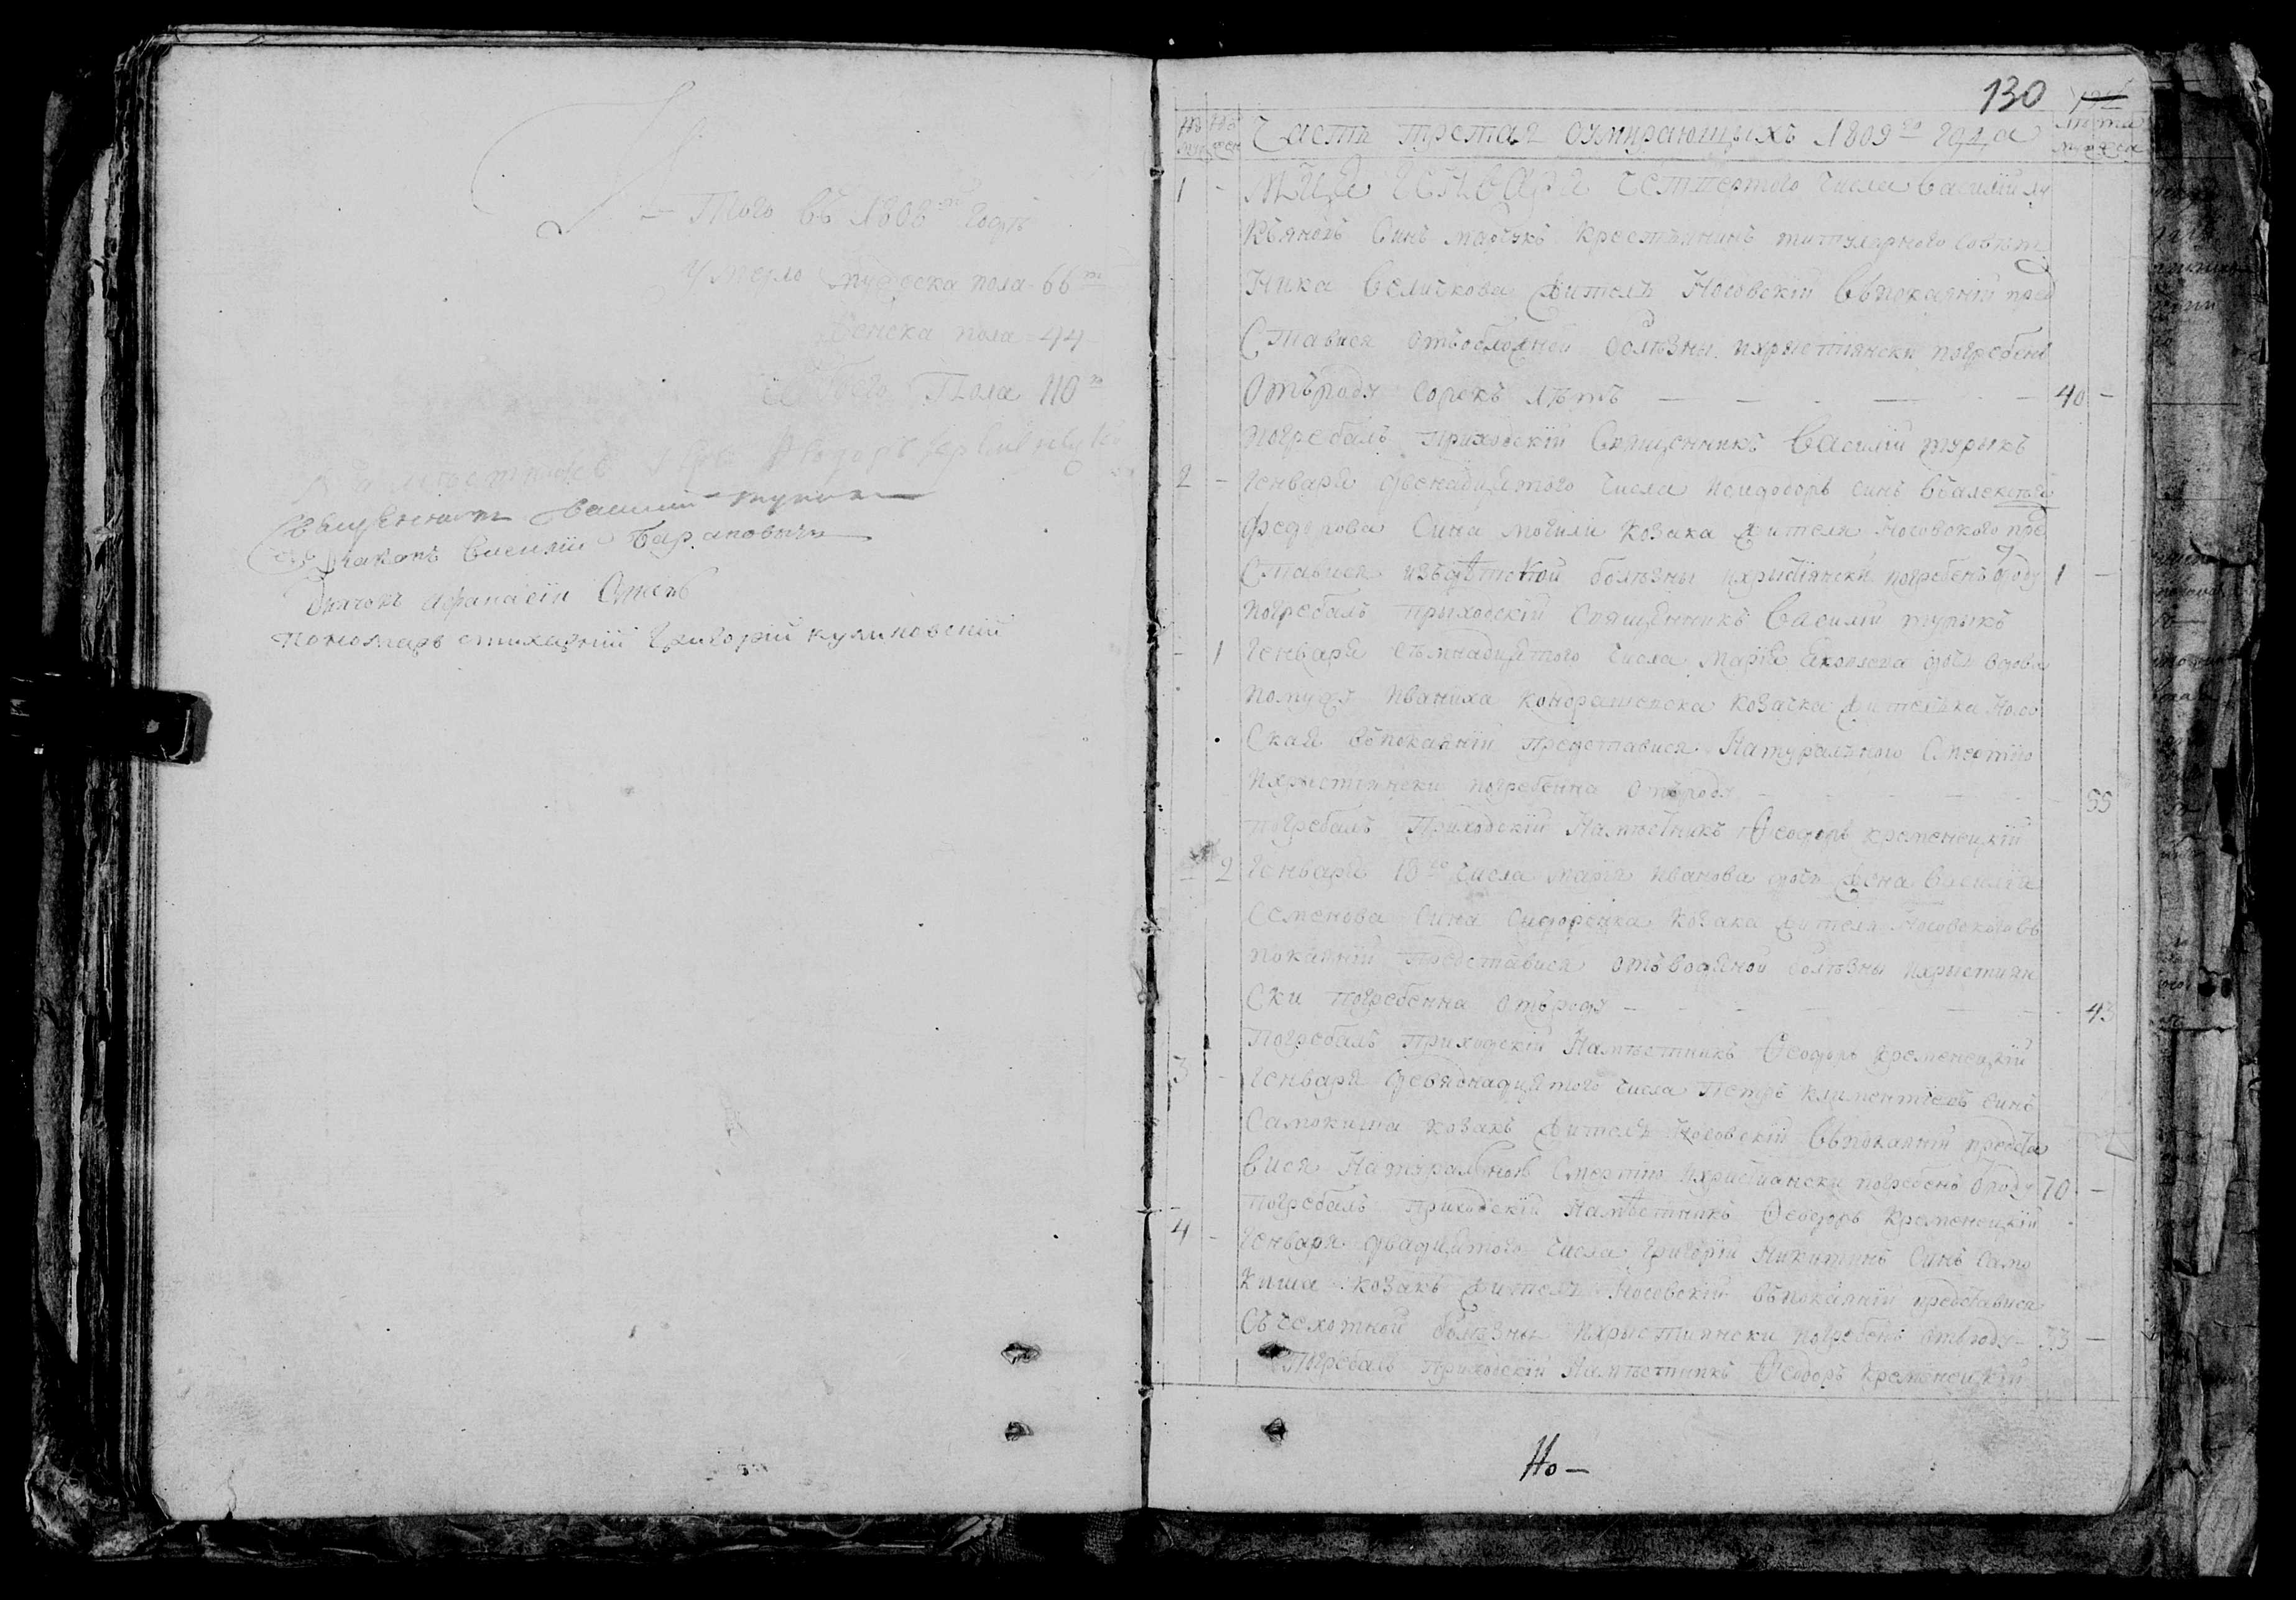 Итого въ 1808мъ годѣ
Умерло мужеска пола 66
женска пола 44
обоего Пола 110
Намѣстникъ Іерей Ѳеодоръ
Священникъ Василий
Диаконъ Василий Барановичъ
Дячокъ Афанасій
Пономаръ стихарній Григорій Кулиновскій
130
Часть третая оумирающихъ 1809го года
лѣта
1 - Мца Генваря четвертого числа Василій Лу
кѣяновъ Синъ Марчукъ крестянинъ титулярного совѣт
Ника Величкова Житель Носовскій Въпокаяніи пред
Ставися отъ болѣзны ихрыстиянски погребенъ
Отъроду сорокъ лѣтъ — 40 -
погребалъ приходскій Священникъ Василій турыкъ
2 - Генваря двенадцятого числа Исидоръ синъ
Федорова Сина Могили козака жителя Носовского пре
Ставися изъдѣтской болѣзны ихрыстіянски погребенъ ѿроду 1 -
погребалъ прыходскій Священникъ Василий турыкъ
- 1 Генваря семнадцятого числа Марія Яковлева дочь вдова
помужу Иваниха козачка жителька Носов
Ская въпокаяніи представися Натуралъного Смертію
ихрыстиянски погребенна отъроду — 55
погребалъ Приходскій Намѣстникъ Ѳеодоръ кременецкій
- 2 Генваря 18го числа Марія Иванова дочь жена Василія
Семенова Сина Сидоренка козака жителя Носовского въ
покаяніи Представися отъ водяной болѣзны ихрыстиян
Ски погребенна отъроду — 43
Погребалъ приходскій Намѣстникъ Ѳеодоръ кременецкій
3 - Генваря девянадцятого числа Петръ климентіевъ синъ
Самокиша козакъ житель Носовскій Въпокаяніи предста
вися Натуральною Смертію ихристиански погребенъ ѿроду 70 -
погребалъ приходскій Намѣстникъ Ѳеодоръ Кременецкій
4 - Генваря двадцятого числа Григорій Никитинъ Синъ Само
киша козакъ житель Носовскій въпокаяніи представися
Съчехотной болѣзны ихрыстиянски погребенъ отъроду - 33 —
Погребалъ приходскій Намѣстникъ Ѳеодоръ Кременецкій
Но —